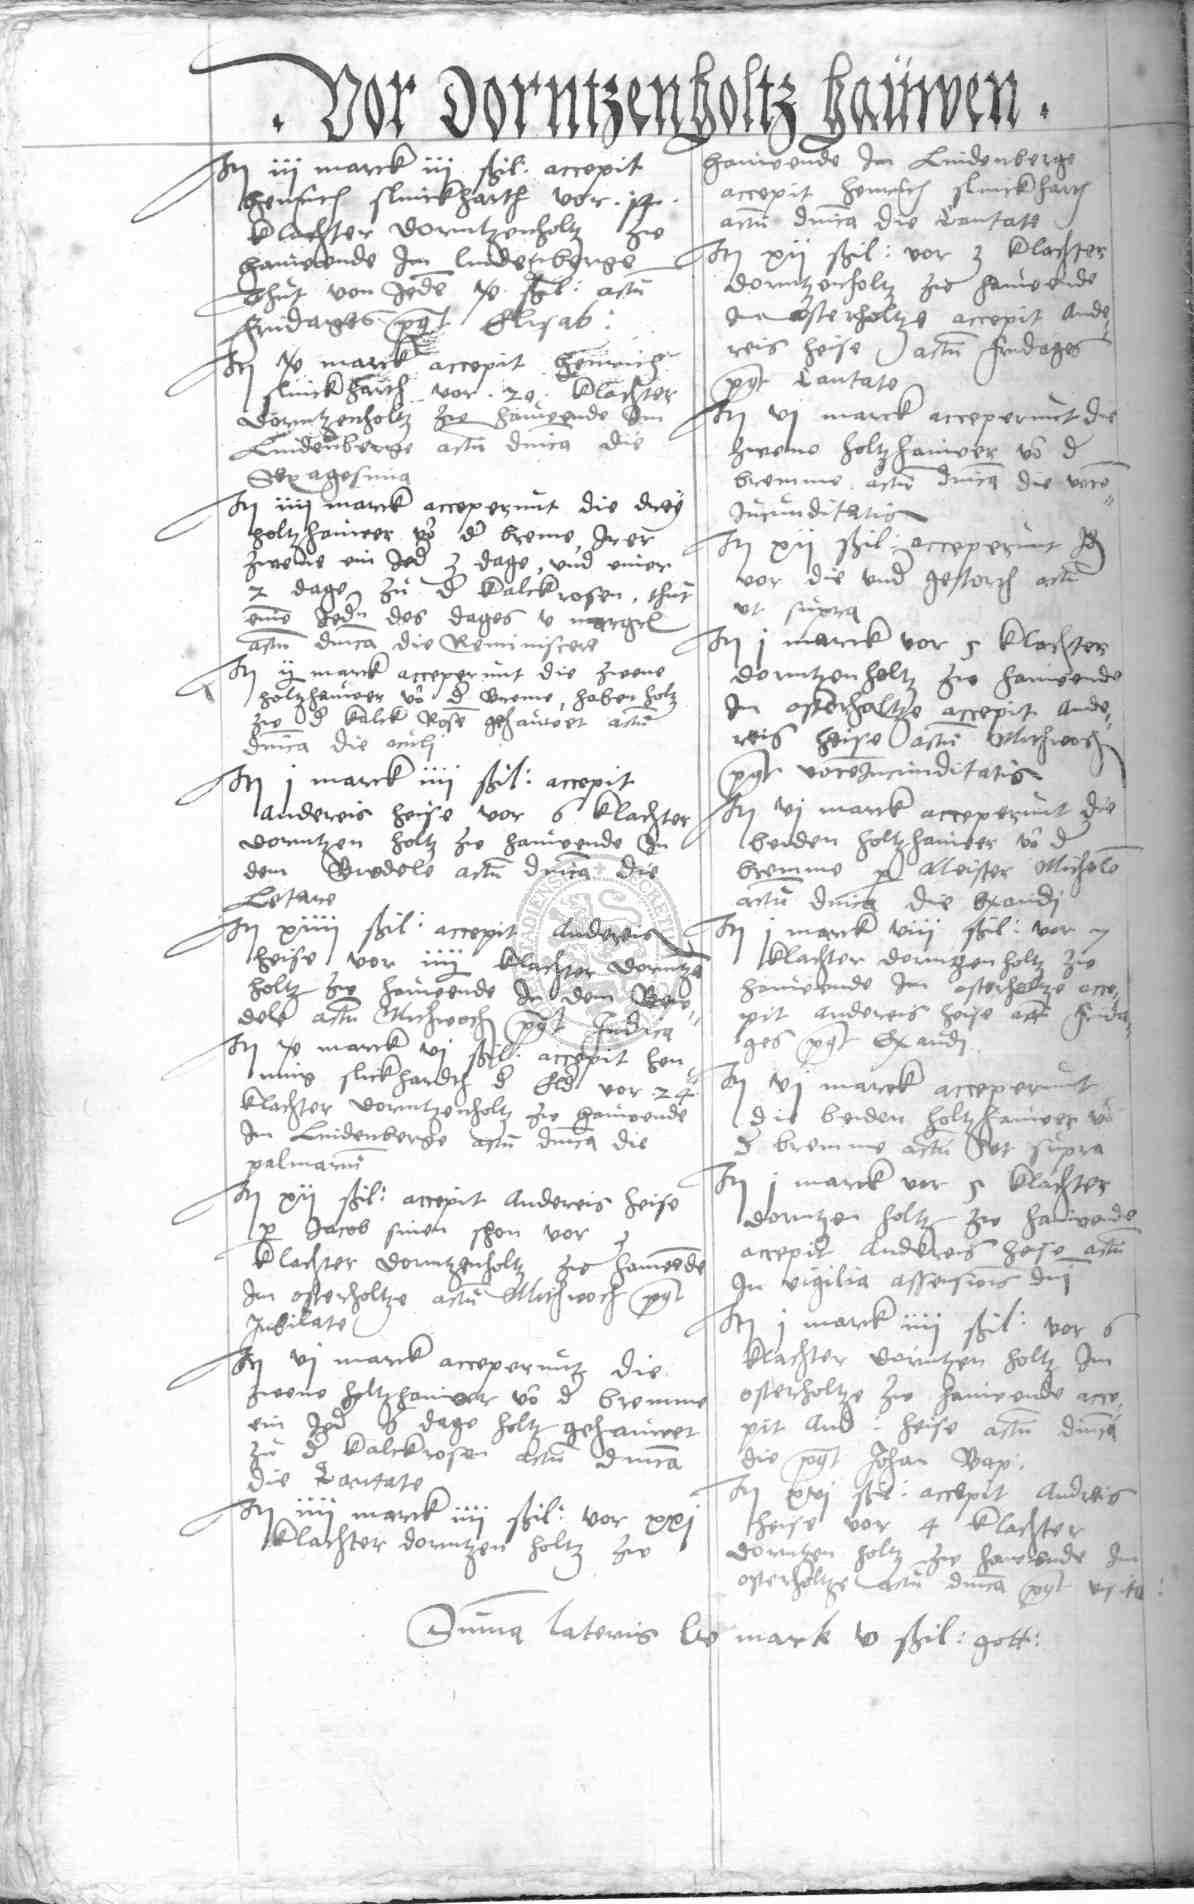 . Vor Dorntzenholtz haüwen .
Itj iij marck iij ßil: accepit
Henrich slinckharth vor . 14 .
klachter dorntzenholtz zw
hauwende Im lindenberge
thut von Jede ßil: actu
fridages pgt Elisab:
Itj marck accepit Henrich
slinckharth vor . 20 . klachter
dorntzenholtz zw hauwende Im
Lindenberge actu dnica die
Sexagesima
Itj iiij marck acceperunt die drey
holtzhauwer vo d breme, Irer
zwene ein Jed 3 dage, vnd einer
2 dage zu d kalckrosen, thut
eine Jedn des dages v margel
actu dnica die Reminiscere
Itj ij marck acceperunt die zwene
holtzhauwer vo d breme, haben holtz
zw d kalck Rose gehauwet actu
dnica die oculj
Itj j marck iiij ßil: accepit
Andereis heise vor 6 klachter
dorntzen holtz zw hauwende In
dem Bredele actu dnica die
Letare
Itj xiiij ßil: accepit Andereis
heise vor iiij klachter dorntze
holtz zw hauwende In dem Bre-
dele actu Mithwoch pgt Judica
Itj marck vj ßil: accepit Hen-
nnig slickhardt d Eld vor 24
klachter dorntzenholtz zw hauwende
Im Lindenberge actu dnica die
palmaru
Itj xij ßil: accepit Andereis heise
p Jacob sinen shon vor 3
klachter dorntzenholtz zw hauwede
Im osterholtze actu Mithwoch pgt
Jubilate
Itj vj marck acceperunt die
zwene holtzhauwer vo d bremme
ein Jed 6 dage holtz gehauwet
zu d kalckrosen actu dnica
die Cantate
Itj iiij marck iiij ßil: vor xxj
klachter dorntzen holtz zw
hauwende Im Lindenberge
accepit Henrich slinckharth
actu dnica die Cantate
Itj xij ßil: vor 3 klachter
dorntzenholtz zw hauwende
Im osterholtze accepit Ande-
reis heise actu fridages
pgt Cantate
Itj vj marck acceperunt die
zwene holtzhauwer vo d
bremme actu dnica die voce-
Jucunditatis
Itj xij ßil: acceperunt Id
vor die vnd gestorch actu
vt supra
Itj j marck vor 5 klachter
dorntzenholtz zw hauwende
Im osterholtze accepit Ande-
reis heise actu Mithwoch
pgt voceJucunditatis
Itj vj marck acceperunt die
beiden holtzhauwer vo d
bremme p Meister Michele
actu dnica die Exaudj
Itj j marck viij ßil: vor 7
klachter dorntzenholtz zw
hauwende Im osterholtze acce-
pit Andereis heise act frida-
ges pgt Exaudj
Itj vj marck acceperunt
die beiden holtzhauwer vo
d bremme actu vt supra
Itj j marck vor 5 klachter
dorntzen holtz zw hauwende
accepit Andereis heise actu
In vigilia assensionis dnj
Itj j marck iiij ßil: vor 6
klachter dorntzen holtz Im
osterholtze zw hauwende acce-
pit And: heise actu dnica
die pgt Johan Bap:
Itj xvj ßil: accepit Andreis
heise vor 4 klachter
dorntzen holtz zw hauwende Im
osterholtze actu dnica pgt visita:
Suma lateris lv mark v ßil: gott: